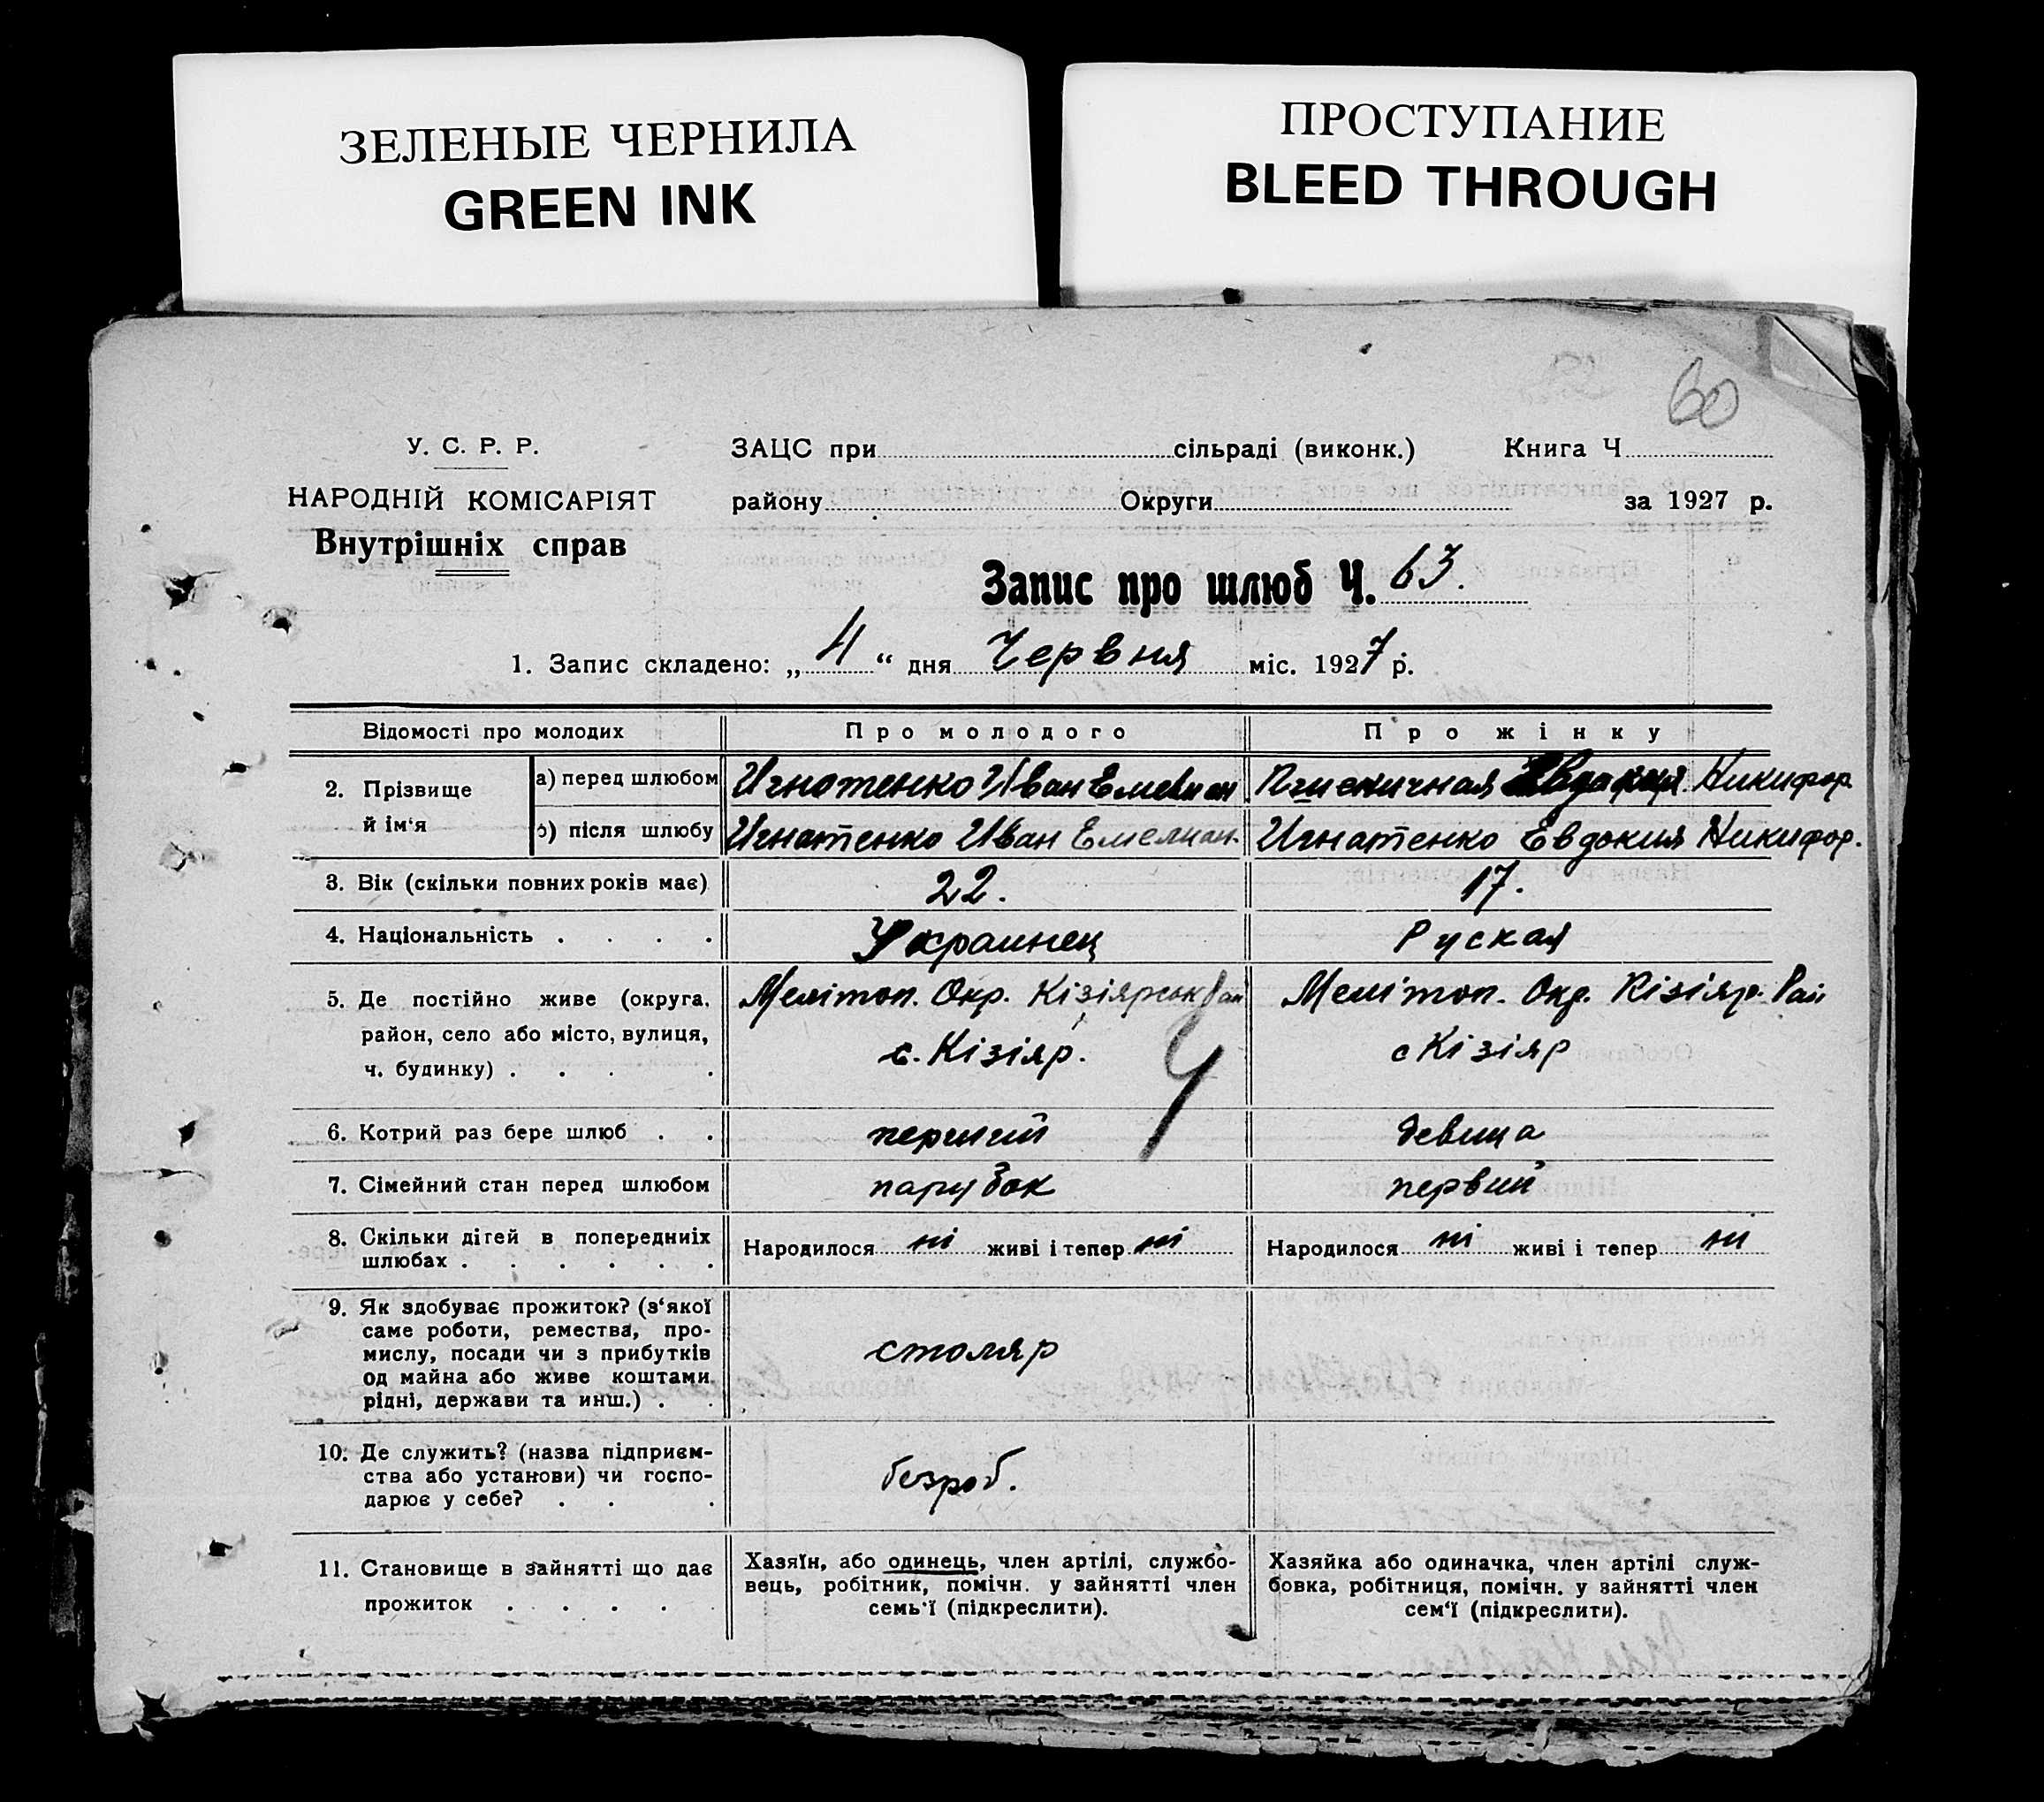 ЗЕЛЕНЫЕ ЧЕРНИЛА
GREEN INK
ПРОСТУПАНИЕ
BLEED THROUGH
60
У. С. Р. Р.
НАРОДНІЙ КОМІСАРІЯТ
Внутрішніх справ
ЗАЦС при сільраді (виконк.) Книга Ч
району Округи за 1927 р.
Запис про шлюб Ч. 63.
1. Запис складено: „4“ дня Червня міс. 1927 р.
Відомості про молодих Про молодого Про жінку
2. Прізвище й ім‘я
а) перед шлюбом Игнотенко Иван Емелиан Пшеничная Евдокия Никифор.
б) після шлюбу Игнатенко Иван Емелиан. Игнатенко Евдокия Никифор.
3. Вік (скільки повних років має) 22. 17.
4. Національність . . . . Украинец Руская
5. Де постійно живе (округа, Мелітоп. Окр. Кізіярськ Рай Мелітоп. Окр. Кізіяр. Рай
район, село або місто, вулиця, с. Кізіяр. с Кізіяр
ч. будинку) . . . .
6. Котрий раз бере шлюб . . перший девица
7. Сімейний стан перед шлюбом парубок первий
8. Скільки дітей в попередніх Народилося ні живі і тепер ні Народилося ні живі і тепер ні
шлюбах . . . . . .
9. Як здобуває прожиток? (з‘якої
саме роботи, ремества, про-
мислу, посади чи з прибутків столяр
од майна або живе коштами
рідні, держави та инш.) . .
10. Де служить? (назва підприєм-
ства або установи) чи госпо- безроб.
дарює у себе? . . .
11. Становище в зайнятті що дає
прожиток . . . . .
Хазяїн, або одинець, член артілі, службо-
вець, робітник, помічн. у зайнятті член
семь‘ї (підкреслити).
Хазяйка або одиначка, член артілі служ-
бовка, робітниця, помічн. у зайнятті член
сем‘ї (підкреслити).